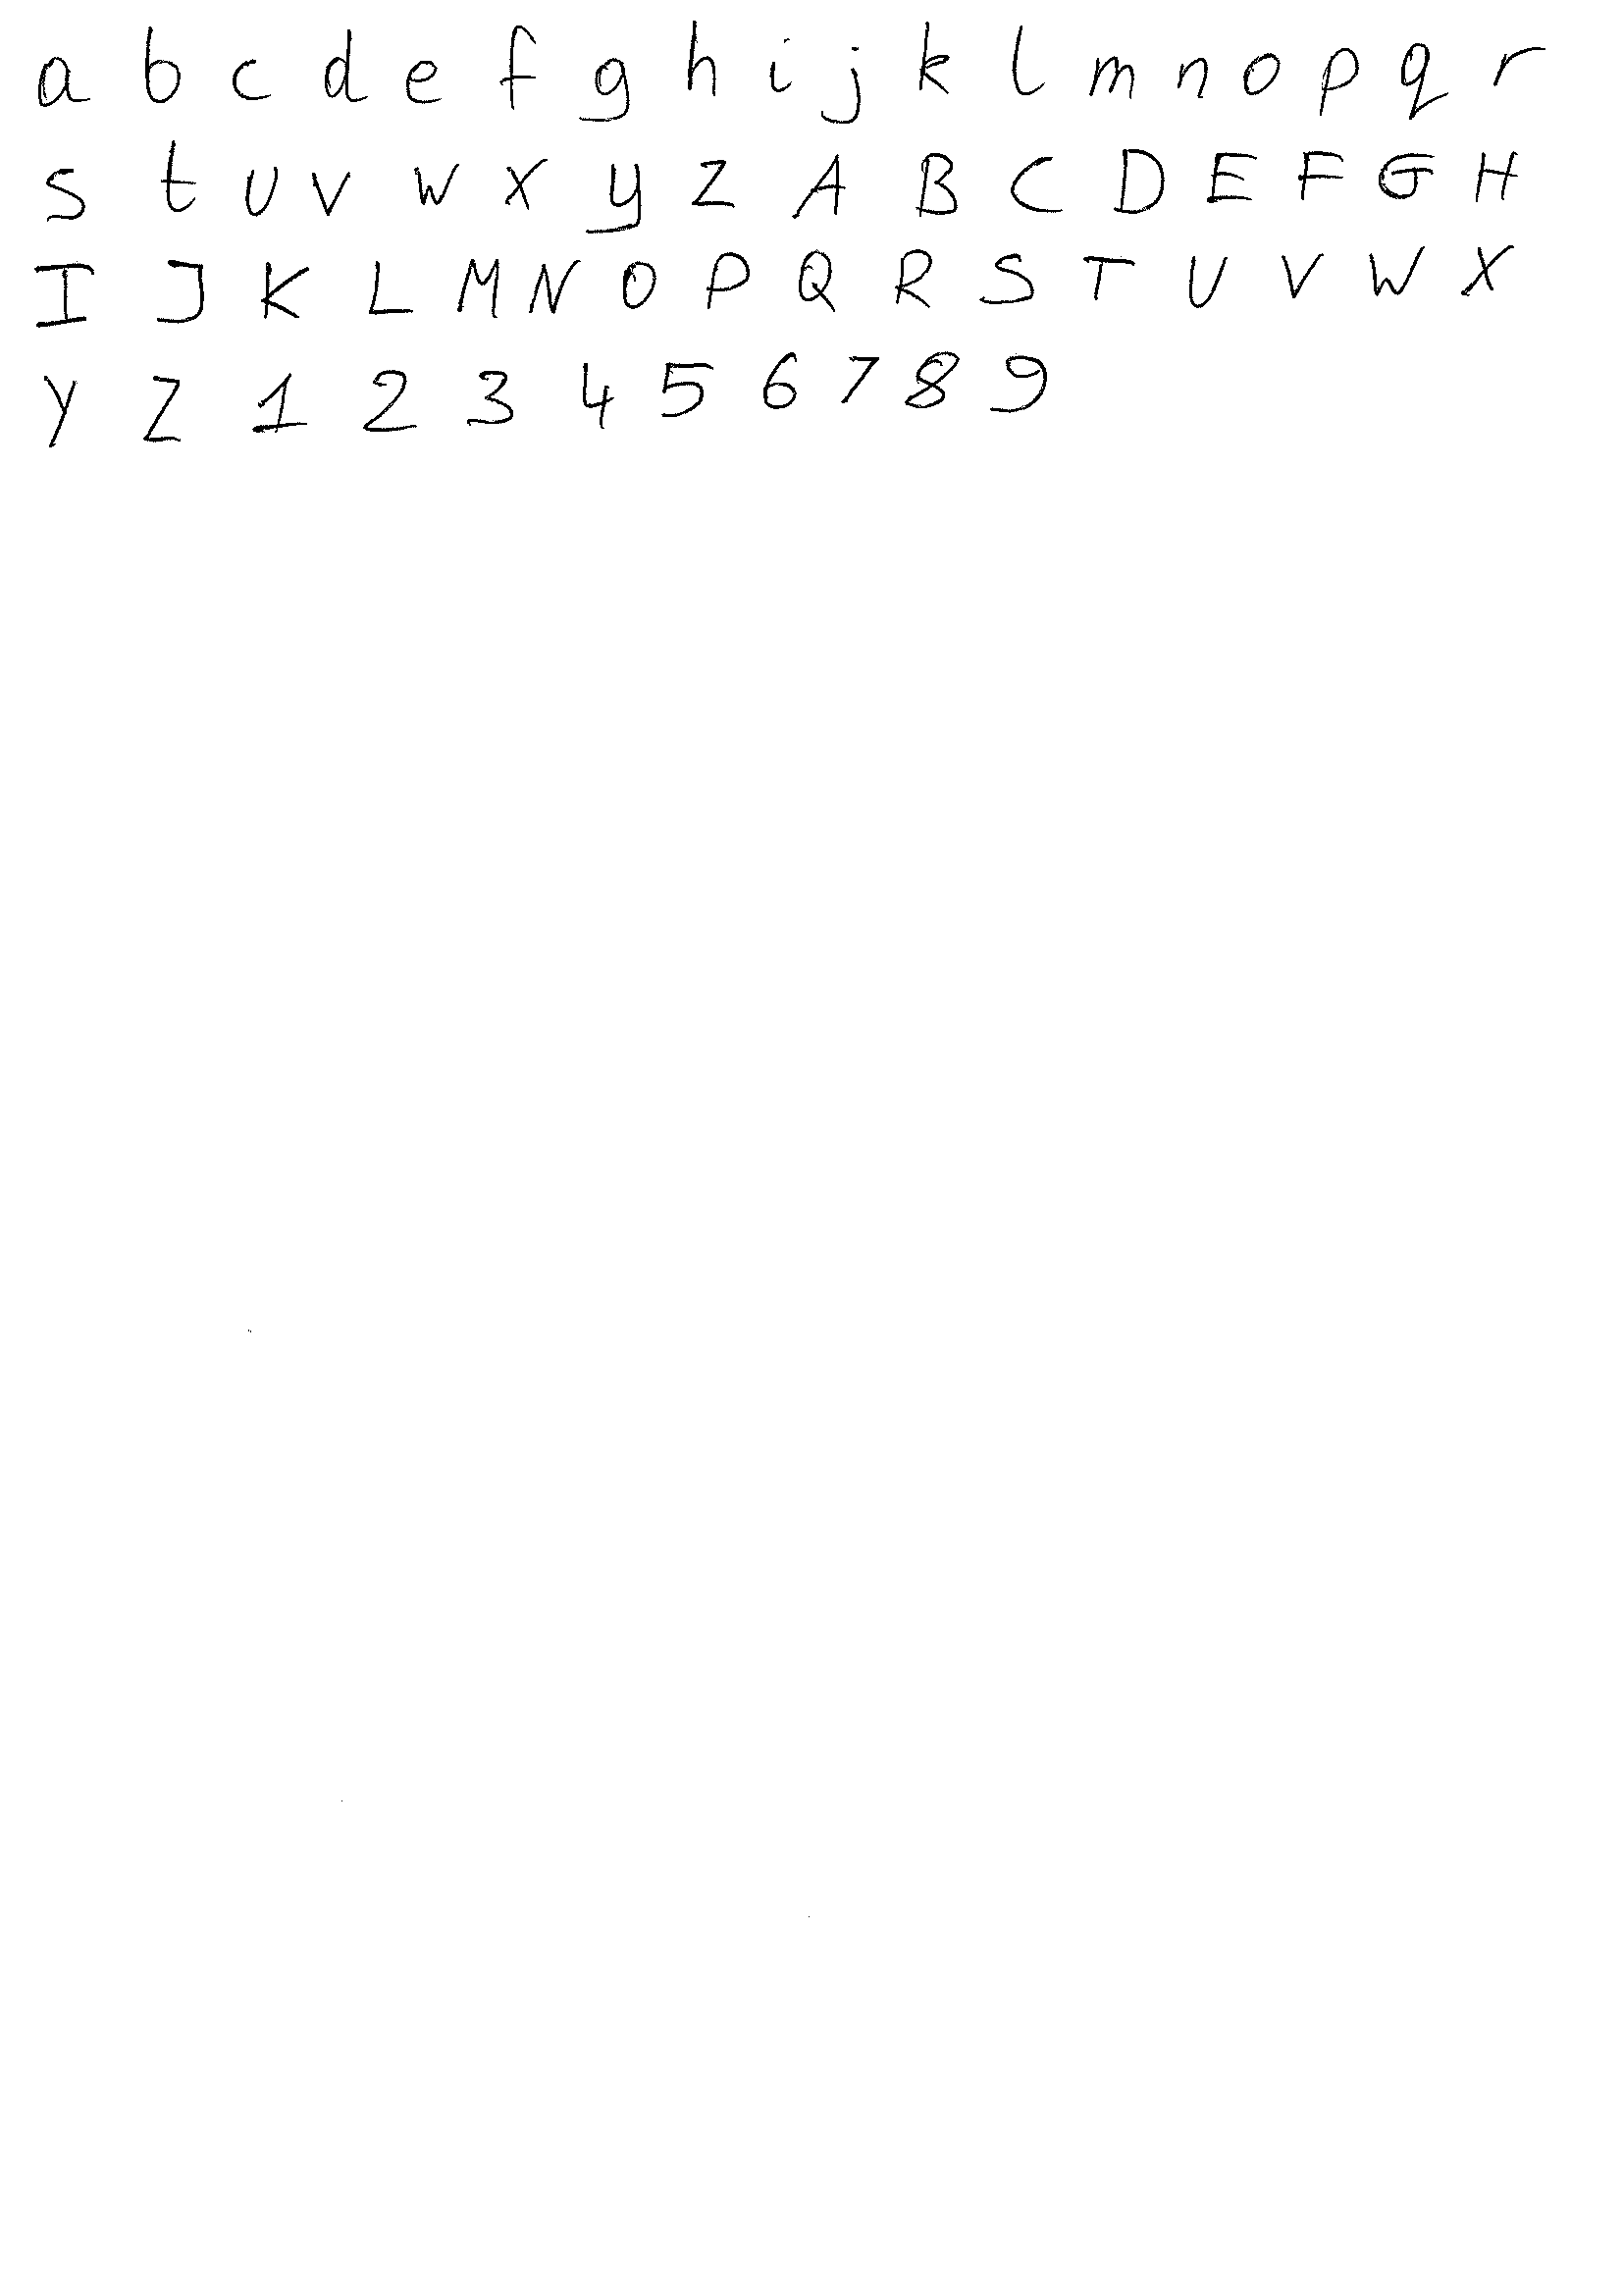 a b c d e f g h i j k l m n o p q r
s t u v w x y z A B C D E F G H
I J K L M N O P Q R S T U V W X
Y Z 1 2 3 4 5 6 7 8 9